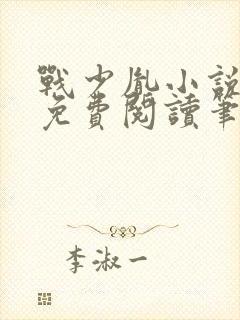 戰少胤小說
免費閱讀筆
李淑一